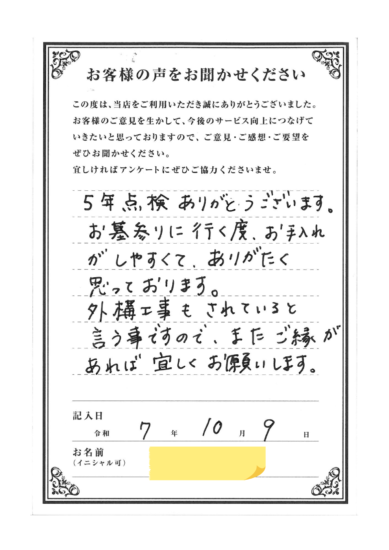 お客様の声をお聞かせください
この度は、当店をご利用いただき誠にありがとうございました。
お客様のご意見を生かして、今後のサービス向上につなげて
いきたいと思っておりますので、ご意見・ご感想・ご要望を
ぜひお聞かせください。
宜しければアンケートにぜひご協力くださいませ。
5年点検ありがとうございます。
お墓参りに行く度、お手入れ
がしやすくて、ありがたく
思っております。
外構工事もされていると
言う事ですので、またご縁が
あれば宜しくお願いします。
記入日
令和 7 年 10 月 9 日
お名前
(イニシャル可)